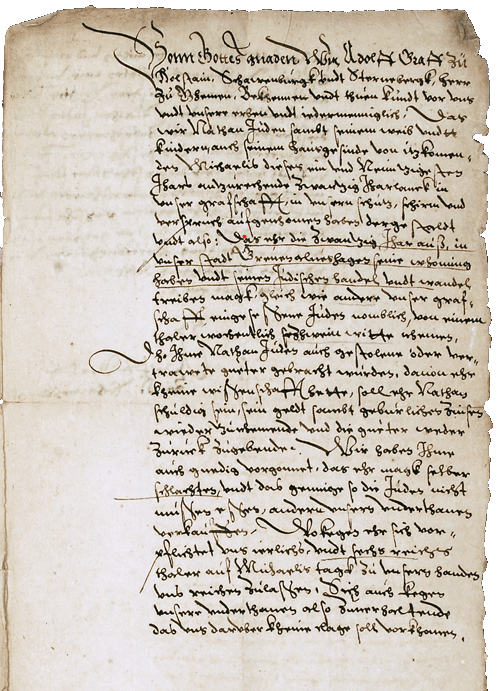 Vonn Gottes gnaden Wir Adolff Graff zů
Holstain, Schawenburgk vndt Sternebergk, herr
zů Ghemen, Bekhennen vndt thuen kundt vor vns
vndt vnsere erben vndt idermenniglich, Das
wir Nathan Juden sambt seinem weib vndtt
kindern, auch seinem haussgesinde von itzkomen-
den Michaelis dieses ein vnd Neintzigesten
Jhars antzurechende zwantzig Jharlanck in
vnser graffschafft, in vnsern schutz, schirm vnd
versprůch auffgenhomen haben dergestaldt
vndt also: Das ehr die zwantzig Jhar auss, in
vnser stadt Grevenalveshagen seine whoning
haben vndt seinen Jůdischen handel vndt wandel
treiben magk, gleich wie andere vnser graf-
schafft eingesessene Juden nomblich, von einem
thaler wochentlich sechs witte nhemen,
Do Ihme Nathan Juden auch gestolene oder ver-
trawete gueter gebracht wurden, dauon ehr
kheine wissenschafft hette, soll ehr Nathan
schuldig sein, sein geldt sambt geburlichen Zinsen
wieder Zunhemende vnd die gueter weder
Zurůck zugebende. Wir haben Ihme
auch gnedig vorgonnet, das ehr magk selber
schlachten, vndt das gennige so die Juden nicht
můssen essen, andern vnsern vnderthanen
verkauffen, Dokegen ehr sich vor-
pflichtet vns ierlichs, vndt sechs reichs
thaler auf Michaelis tagk zů vnsern handen
vns reichen zulassen, Sich auch kegen
vnsere vnderthanen also zuuerhaltende
das vns daruber kheine clage soll vorkhomen,